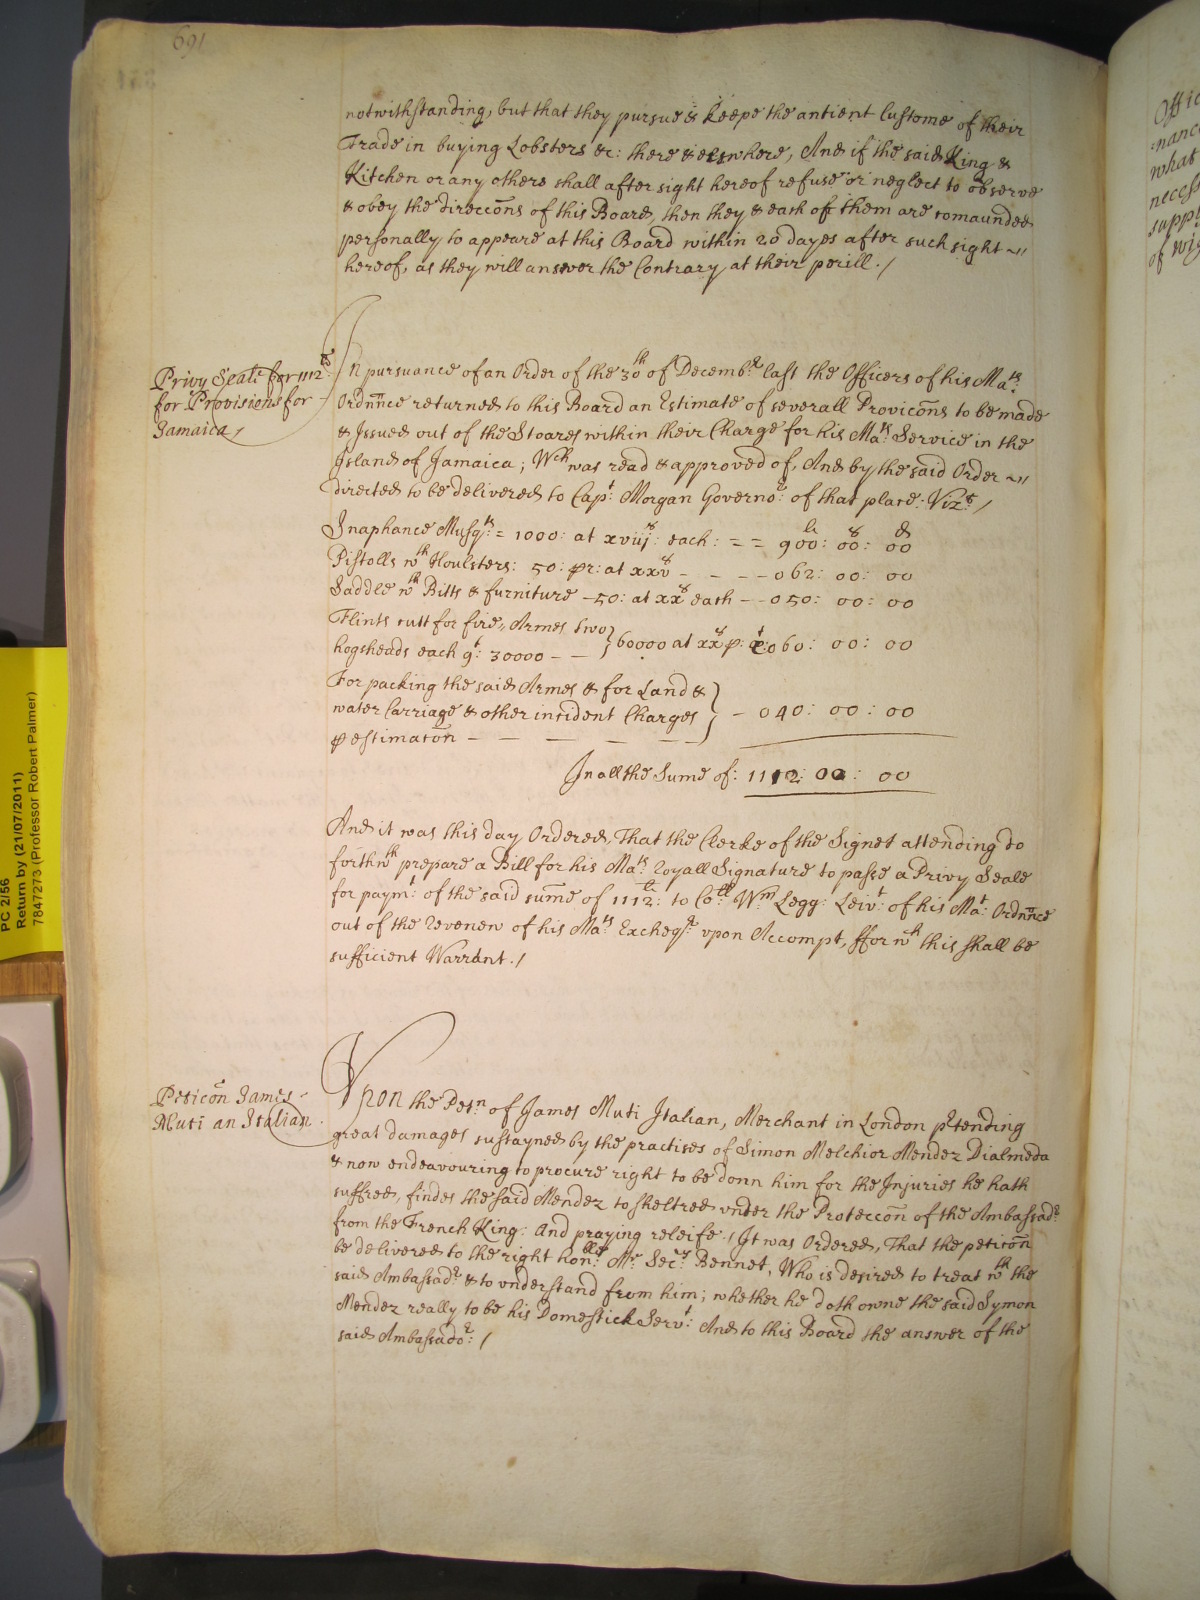 691
notwithstanding, but that they pursue & keepe the antient Custome of their
Trade in buying Lobsters &c: there & elswhere, And if the said King &
Kitchen or any others shall after sight hereof refuse or neglect to observe
& obey the direccõns of this Board, then they & each of them are comaunded
personally to appeare at this Board within 20 dayes after such sight
hereof, as they will answer the Contrary at their perill./
Privy Seale for 1112li:
for Provisions for
Jamaica/
In pursuance of an Order of the 30th of Decembr: last the Officers of his Mats:
Ordnñce returned to this Board an Estimate of severall Provicõns to be made
& Issued out of the Stoares within their Charge for his Mats: Service in the
Island of Jamaica; Wch was read & approved of, And by the said Order
directed to be delivered to Capt: Morgan Governor: of that place: Vizt:/
Snaphance Musqts: = 1000: at xviijs: each: = = 900li: 00s: 00d
Pistolls wth Houlsters: 50: pr: at xxvs - - - - 062: 00: 00
Saddle wth Bitts & furniture - 50: at xxs each - - 050: 00: 00
Flints cutt for fire, Armes two
hogsheads each qt: 30000 - - } 60000 at xxs p: 060: 00: 00
For packing the said Armes & for Land &
water Carriage & other incident Charges } - 040: 00: 00
p estimacõn - - - - -
In all the Sume of: 1112: 00: 00
And it was this day Ordered, That the Clerke of the Signet attending do
forthwth prepare a Bill for his Mats: Royall Signature to passe a Privy Seale
for paymt: of the said sume of 1112li: to Coll: Wm Legg: Leivt: of his Mats: Ordnñce
out of the Revenew of his Mats: Excheqr: vpon Accompt, ffor wch this shall be
sufficient Warrant./
Peticõn James
Muti an Italian
Vpon the Petn: of James Muti Italian, Merchant in London prtending
great damages sustayned by the practises of Simon Melchior Mendez Dialmeda
& now endeavouring to procure right to be donn him for the Injuries he hath
suffred, findes the said Mendez to sheltred vnder the Proteccõn of the Ambassadr:
from the French King: And praying releife./ It was Ordered, That the peticõn
be delivered to the right honble: Mr: Secry: Bennet, Who is desired to treat wth the
said Ambassadr: & to vnderstand from him; whether he doth owne the said Symon
Mendez really to be his Domestick Servt: And to this Board the answer of the
said Ambassador:/
Offic
nanc
what
necess
supp
of
PC 2/56
Return by (21/07/2011)
7847273 (Professor Robert Palmer)